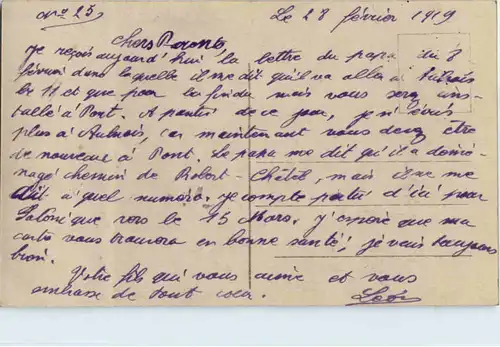 nº 25 Le 28 février 1919
Chers Parents
Je reçois aujourd'hui la lettre du papa du 8
février dans laquelle il me dit qu'il va aller à
le 11 et que pour la fin du mois vous serez ins-
tallé à Pont. A partir de ce jour, je n'écris
plus à Aulnois, car maintenant vous devez être
de nouveau à Pont. Le papa me dit qu'il a démé-
nagé chemin de Robert-Châtel, mais il ne me
dit à quel numéro. je compte partir d'ici pour
Salonique vers le 15 Mars. J'espère que ma
carte vous trouvera en bonne santé; je vais toujours
bien.
Votre fils qui vous aime et vous
embrasse de tout cœur.